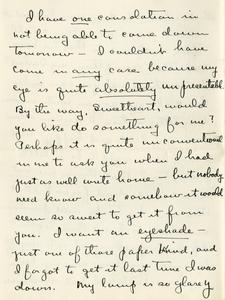 I have one consolation in
not being able to come down
tomorrow — I couldn't have
come in any case because my
eye is quite absolutely unpresentable.
By the way, Sweetheart, would
you like do something for me?
Perhaps it is quite unconventional
in me to ask you when I had
just as well write home — but nobody
need know and somehow it would
seem so sweet to get it from
you. I want an eyeshade —
just one of those paper kind, and
I forgot to get it last time I was
down. My lamp is so glary